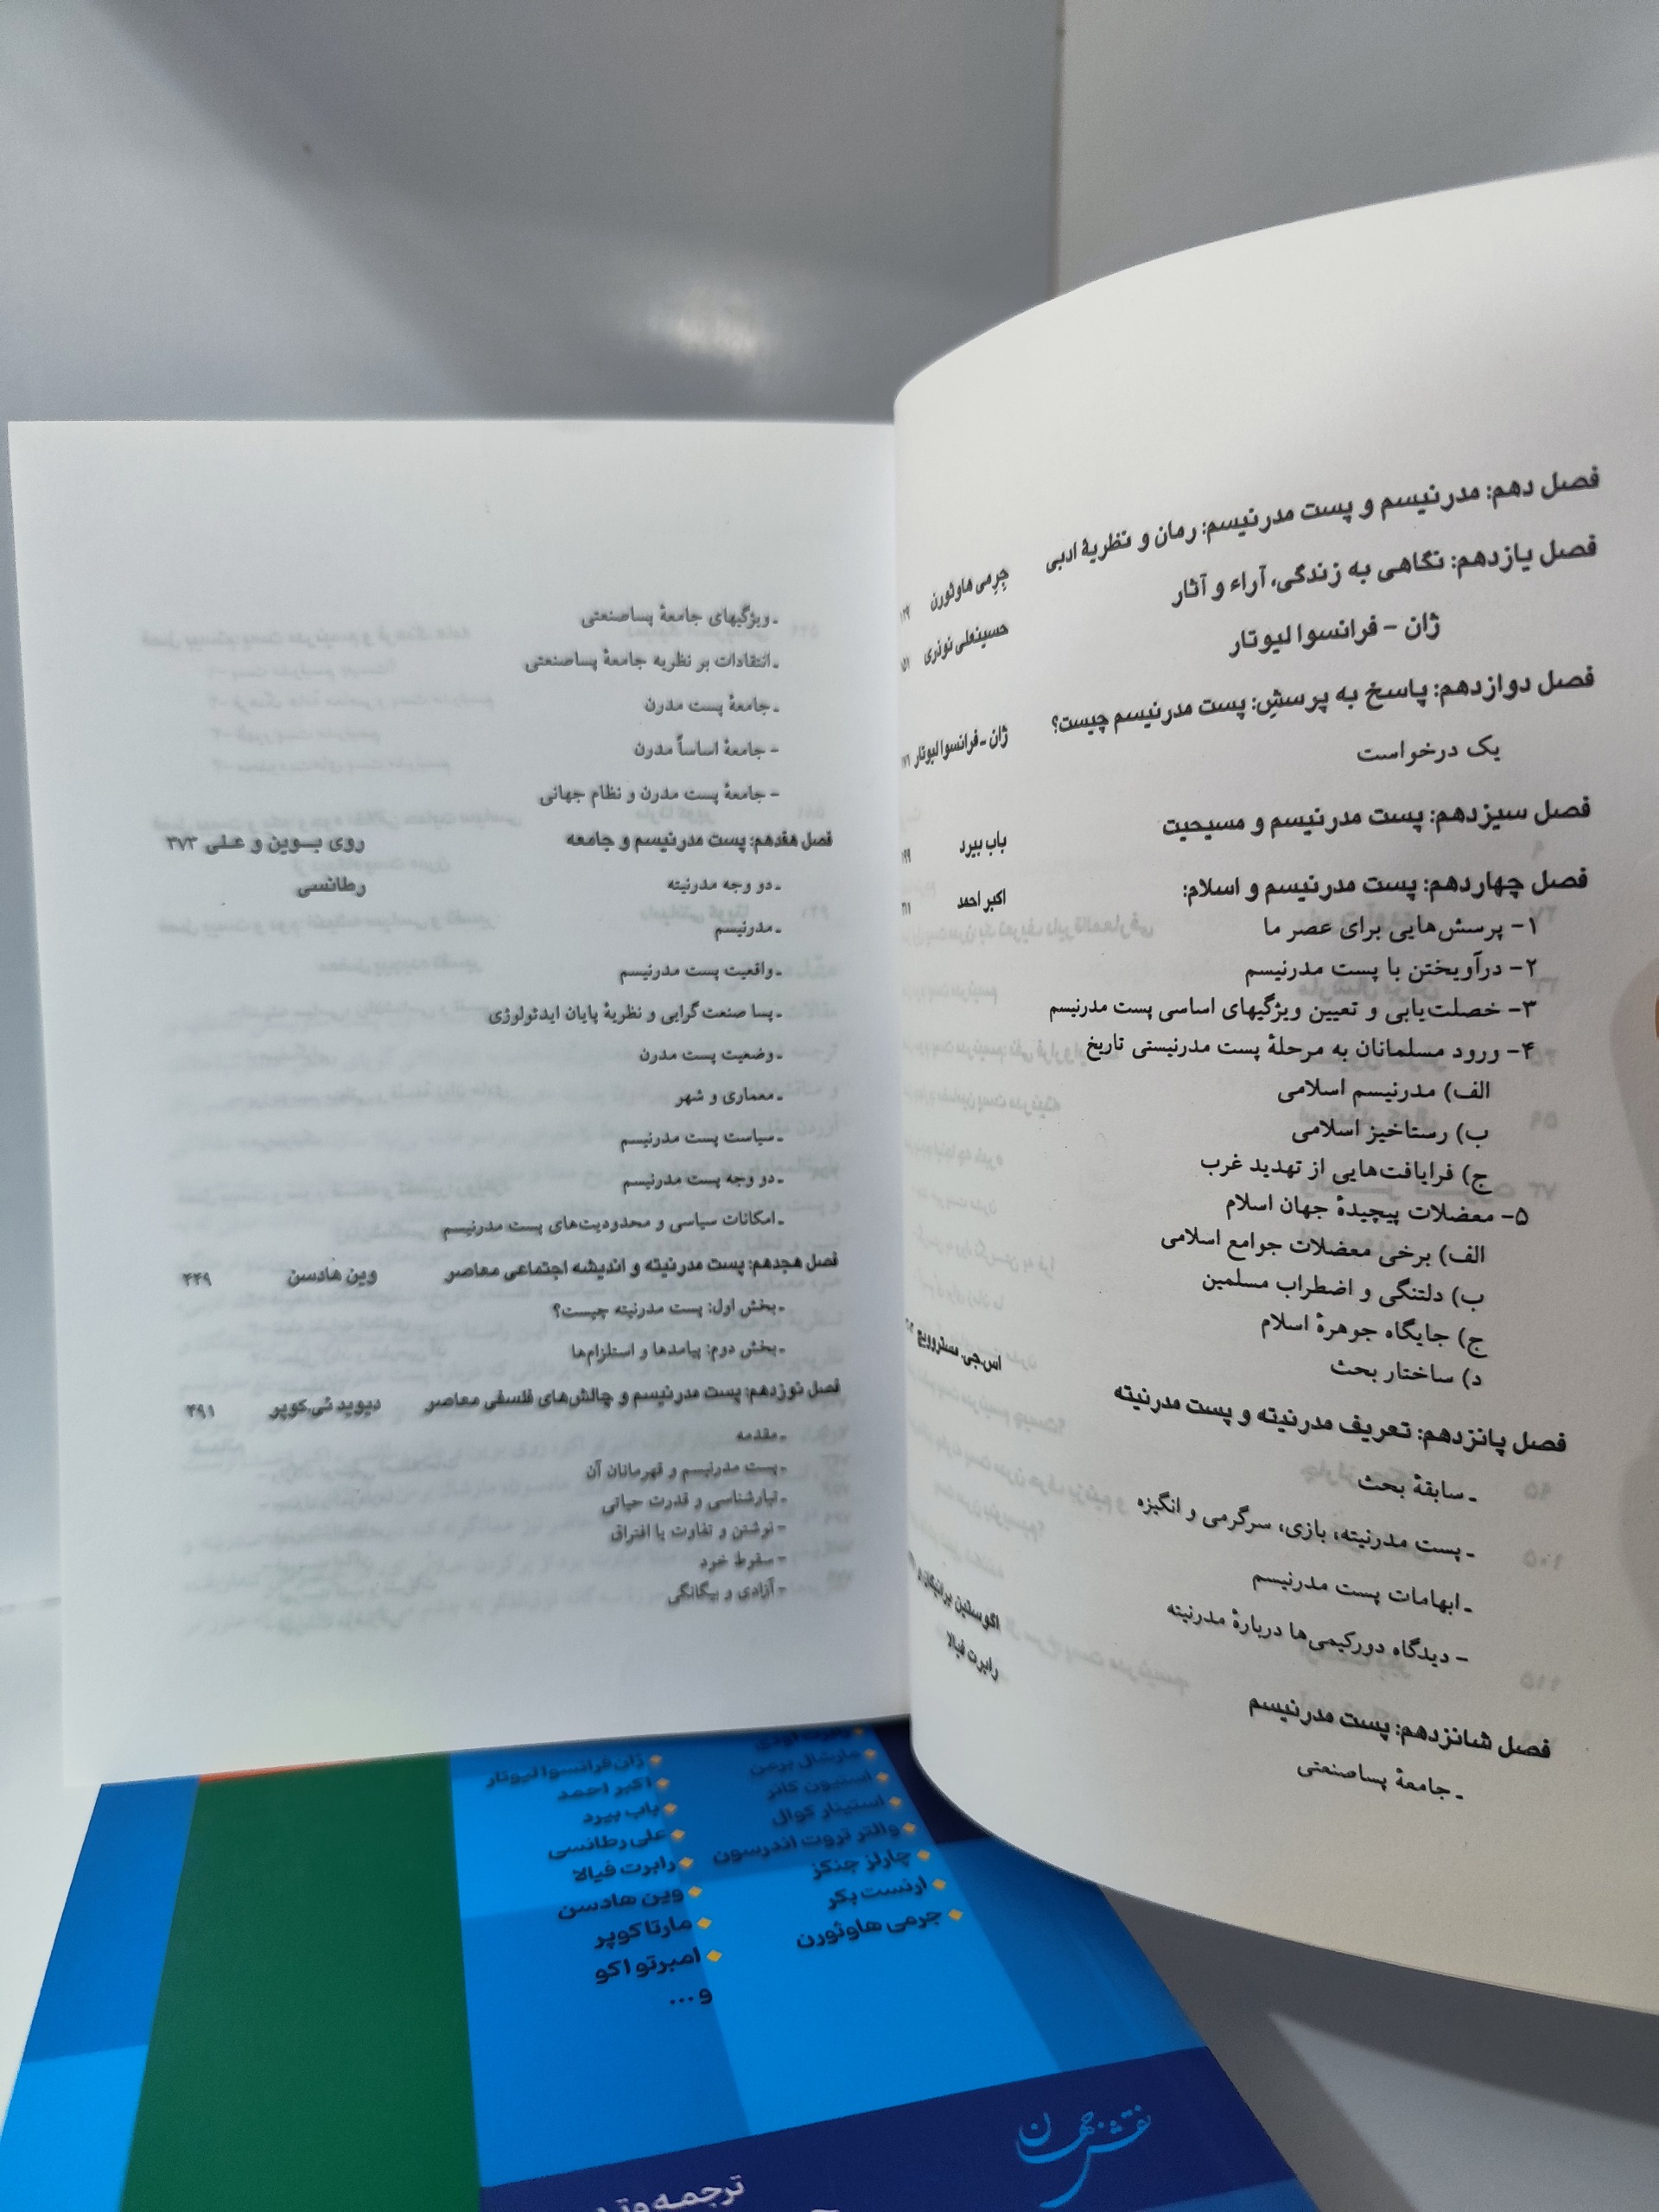 فصل دهم: مدرنیسم و پست مدرنیسم: رمان و نظریهٔ ادبی
جِرِمی هاوثورن
فصل یازدهم: نگاهی به زندگی، آراء و آثار
ژان - فرانسوا لیوتار
حسینعلی نوذری
فصل دوازدهم: پاسخ به پرسشِ: پست مدرنیسم چیست؟
یک درخواست
ژان ـ فرانسوا لیوتار
فصل سیزدهم: پست مدرنیسم و مسیحیت
باب بیرد
فصل چهاردهم: پست مدرنیسم و اسلام:
اکبر احمد
۱- پرسش‌هایی برای عصر ما
۲- درآویختن با پست مدرنیسم
۳- خصلت‌یابی و تعیین ویژگیهای اساسی پست مدرنیسم
۴- ورود مسلمانان به مرحلهٔ پست مدرنیستی تاریخ
الف) مدرنیسم اسلامی
ب) رستاخیز اسلامی
ج) فرایافت‌هایی از تهدید غرب
۵- معضلات پیچیدهٔ جهان اسلام
الف) برخی معضلات جوامع اسلامی
ب) دلتنگی و اضطراب مسلمین
ج) جایگاه جوهرهٔ اسلام
د) ساختار بحث
فصل پانزدهم: تعریف مدرنیته و پست مدرنیته
اس.جی. مستروویچ
ـ سابقهٔ بحث
ـ پست مدرنیته، بازی، سرگرمی و انگیزه
ـ ابهامات پست مدرنیسم
- دیدگاه دورکیمی‌ها دربارهٔ مدرنیته
فصل شانزدهم: پست مدرنیسم
اگوستین برانیگان و
رابرت فیالا
ـ جامعهٔ پساصنعتی
ـ ویژگیهای جامعهٔ پساصنعتی
ـ انتقادات بر نظریه جامعهٔ پساصنعتی
ـ جامعهٔ پست مدرن
- جامعهٔ اساساً مدرن
- جامعهٔ پست مدرن و نظام جهانی
فصل هفدهم: پست مدرنیسم و جامعه روی بـوین و عـلی ۳۷۳
رطانسی
ـ دو وجه مدرنیته
ـ مدرنیسم
ـ واقعیت پست مدرنیسم
ـ پسا صنعت گرایی و نظریهٔ پایان ایدئولوژی
ـ وضعیت پست مدرن
ـ معماری و شهر
ـ سیاست پست مدرنیسم
ـ دو وجه پست مدرنیسم
ـ امکانات سیاسی و محدودیت‌های پست مدرنیسم
فصل هجدهم: پست مدرنیته و اندیشه اجتماعی معاصر وین هادسن ۴۴۹
ـ بخش اول: پست مدرنیته چیست؟
ـ بخش دوم: پیامدها و استلزام‌ها
فصل نوزدهم: پست مدرنیسم و چالش‌های فلسفی معاصر دیوید ئی.کوپر ۴۹۱
ـ مقدمه
ـ پست مدرنیسم و قهرمانان آن
ـ تبارشناسی و قدرت حیاتی
- نوشتن و تفاوت یا افتراق
- سقوط خرد
- آزادی و بیگانگی
مارشال برمن
استیون کانر
استینار کوال
والتر تروت اندرسون
چارلز جنکز
ارنست بکر
جرمی هاوثورن
ژان فرانسوا لیوتار
اکبر احمد
باب بیرد
علی رطانسی
رابرت فیالا
وین هادسن
مارتا کوپر
امبرتو اکو
و ...
نقش جهان
ترجمه و